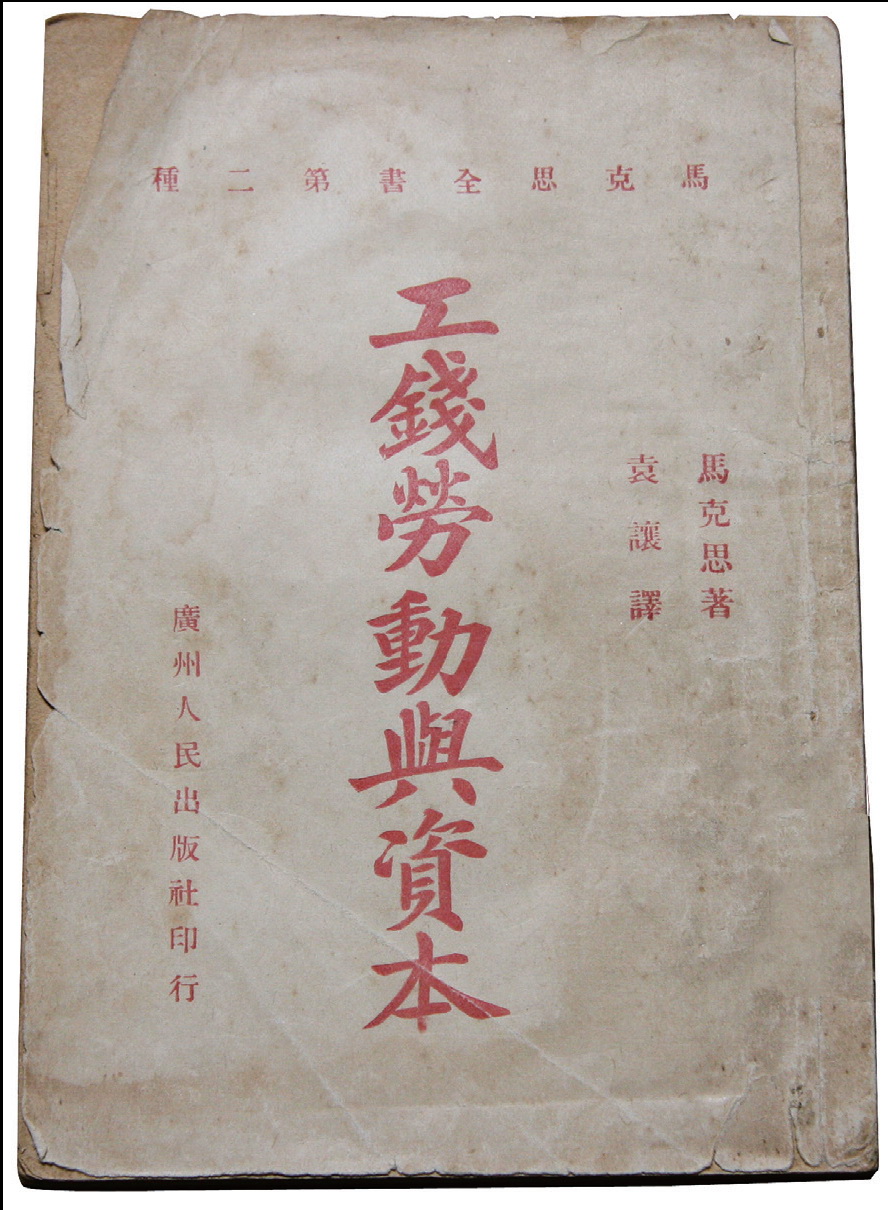 馬克思全書第二種
馬克思著
袁讓譯
工錢勞動與資本
廣州人民出版社印行